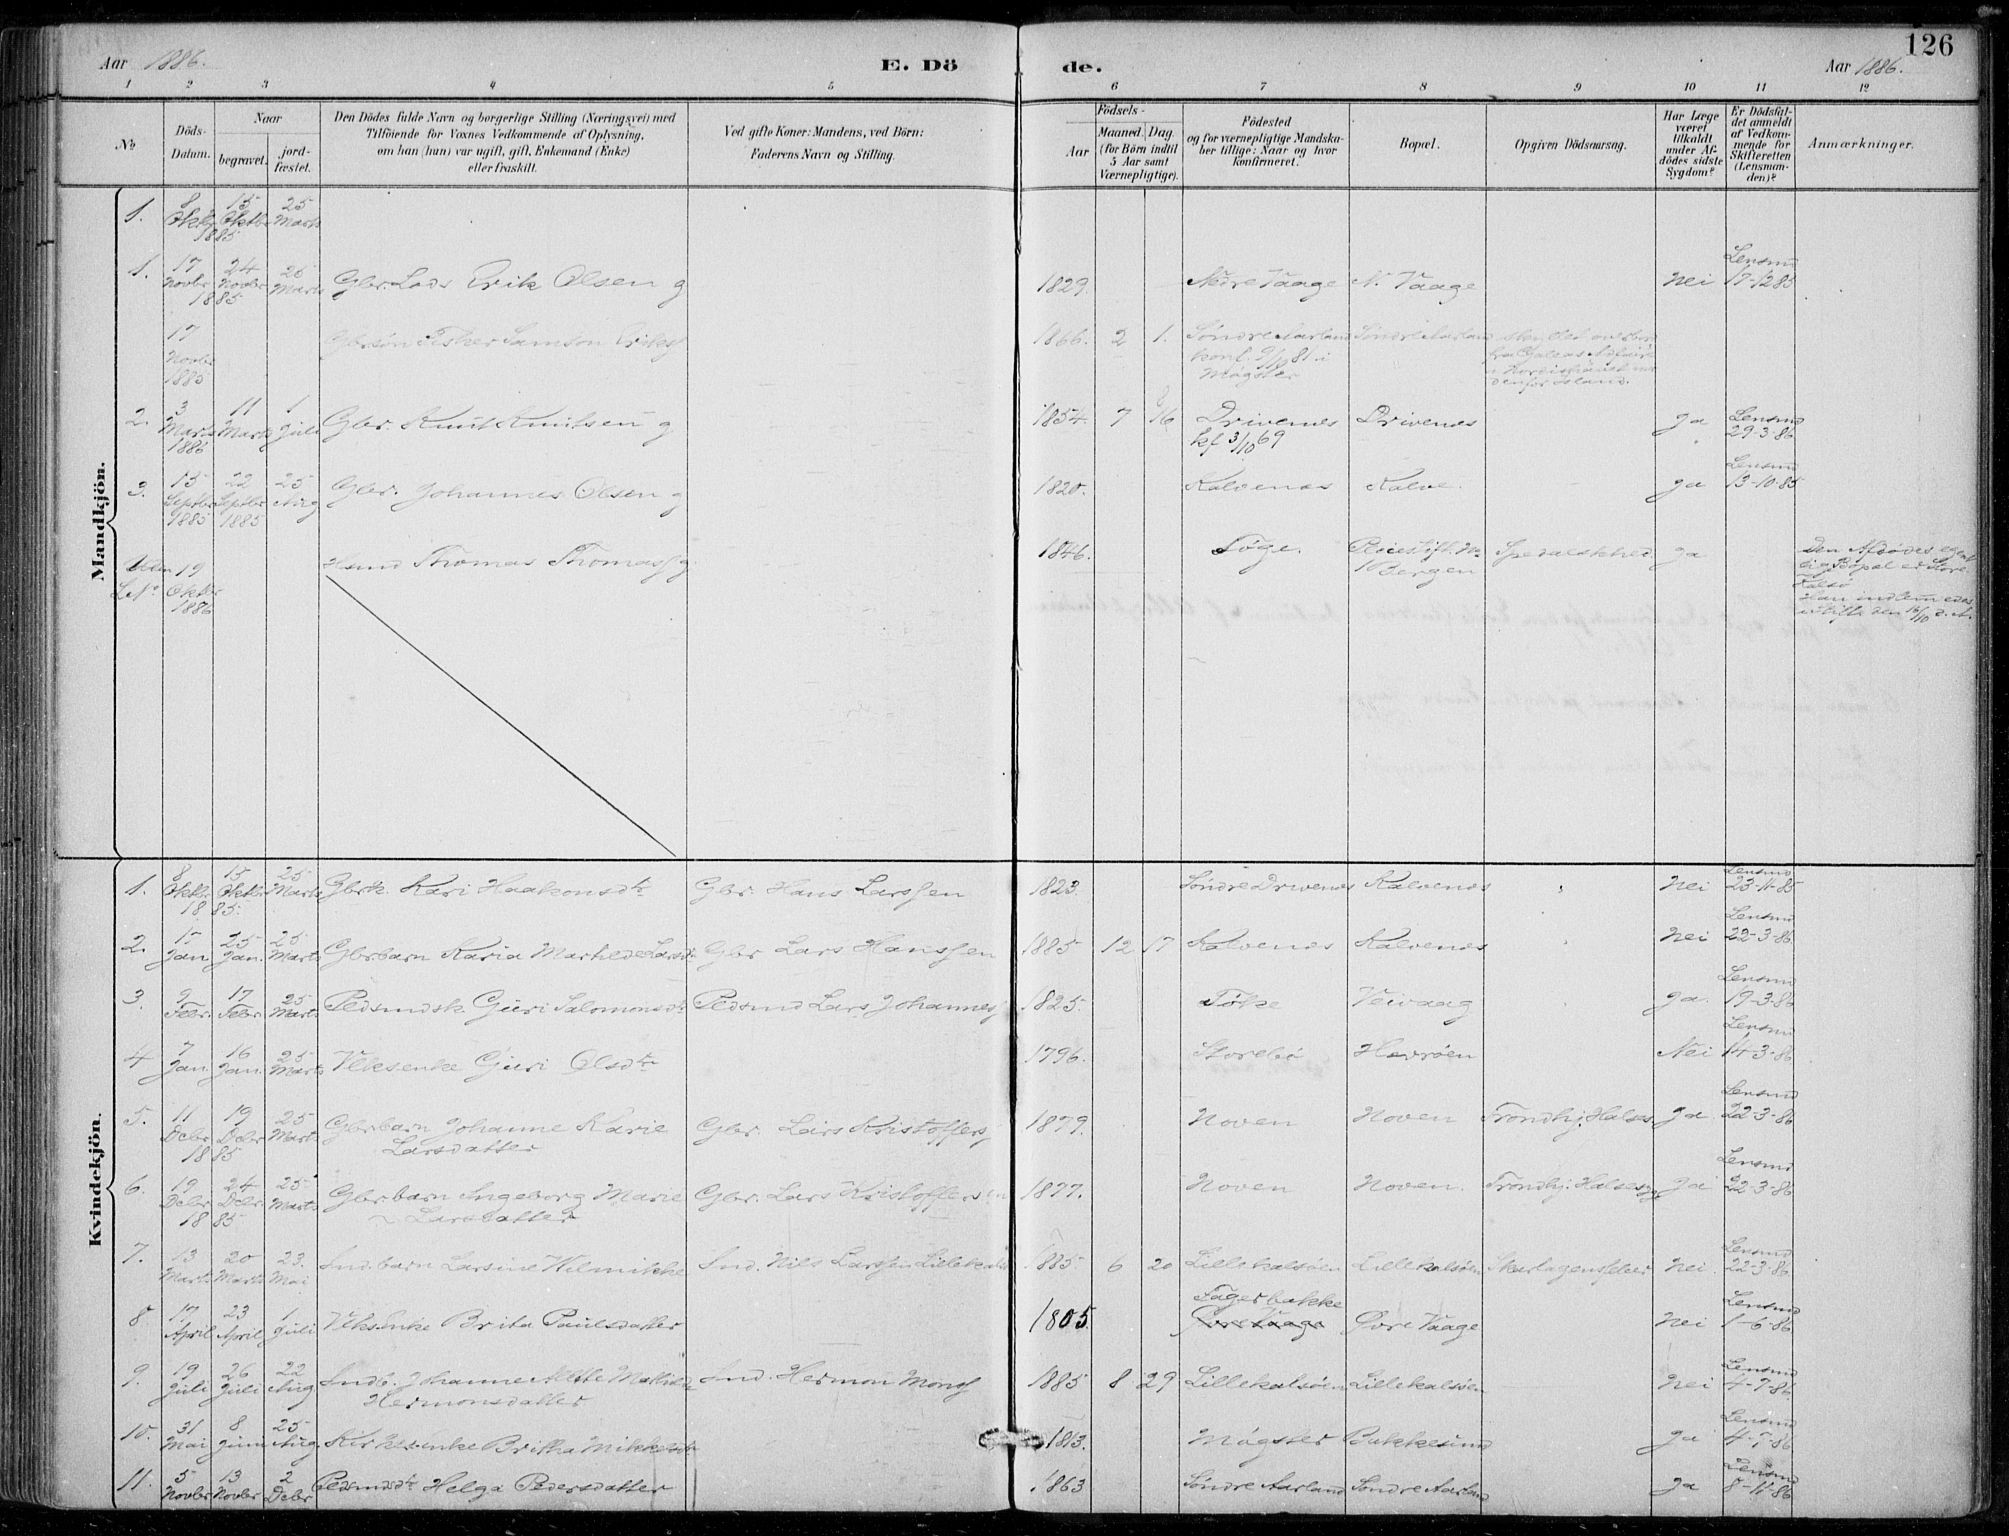 126
Aar 1886. E. Dö de. Aar 1886.
1 2 3 4 5 6 7 8 9 10 11 12
No
Döds-Datum.
Naar
begravet.
jord-fæstet.
Den Dödes fulde Navn og borgerlige Stilling (Næringsvei) med
Tilföiende for Voxnes Vedkommende af Oplysning,
om han (hun) var ugift, gift, Enkemand (Enke)
eller fraskilt.
Ved gifte Koner: Mandens, ved Börn:
Faderens Navn og Stilling.
Födsels-
Aar
Maaned. Dag.
(for Börn indtil
5 Aar samt
Værnepligtige).
Födested
og for værnepligtige Mandska-
ber tillige: Naar og hvor
Konfirmeret.
Bopæl.
Opgiven Dödsaarsag.
Har Læge
været
tilkaldt
under Af-
dödes sidste
Sygdom?
Er Dödsfal-
det anmeldt
af Vedkom-
mende for
Skifteretten
(Lensman-
den)?
Anmærkninger.
Mandkjön.
1. 8 Oktbr 15 Oktbr 1885 25 Marts
1. 17 Novbr 24 Novbr 1885 26 Marts Gbr. Lads Erik Olsen g 1829. Nedre Vaage N. Vaage Nei Lensmd 17-12 85
17 Novbr 1885 Gbrsøn Fisker Samson Eriks 1866. 2 1. Søndre Aarland konf. 9/10 81 i Møgster Søndre Aarland
2. 3 Marts 1886 11 Marts 1 Juli Gbr. Knut Knutsen g 1854. 7 16 Drivenes kf 3/10 69 Drivenes Ja Lensmd 29-3-86
3. 15 Septbr 1885 22 Septbr 1885 25 Aug Gbr. Johannes Olsen g 1820. Kalvenes Kalve. Ja Lensmd 13-10-85
Uden L. No 19 Oktbr 1886 Husmd Thomas Thomass g 1846. Føge. Pleiestift. No 1 Bergen Spedalskhed Ja Den Afdødes egent
lig Bopæl er Store
Kalsø
Han indlem edes
i Stift. den 16/10 d. A.
Kvindekjön.
1. 8 Oktbr 15 Oktbr 1885. 25 Marts Gbrk. Kari Haakonsdtr Gbr. Hans Larssen 1823. Søndre Drivenes Kalvenes Nei Lensmd 23-11-85
2. 15 Jan 25 Jan. 25 Marts Gbrbarn Karia Mathilde Larsdr Gbr Lars Hanssen 1885 12 17 Kalvenes Kalvenes Nei Lensmd 22-3-86
3. 9 Febr. 17 Febr 25 Marts Pedsmdsk. Guri Salomonsdtr Pedsmd Lars Johannes 1825. Føke Veivaag Ja. Lensmd 19-3-86
4 7 Jan 16 Jan. 25 Marts Vlksenke Guri Olsdtr 1796. Storebø Hevrøen Nei Lensmd 14-3-86
5. 11 Debr 19 Debr 1885 25 Marts Gbrbarn Johanne Karie
Larsdatter Gbr. Lars Kristoffers 1879. Noven Noven Trondhj. Halses Ja Lensmd 22-3-86
6. 19 Debr 24 Debr. 1885 25 Marts Gbrbarn Ingeborg Marie
Larsdatter Gbr. Lars Kristoffersen 1877. Noven Noven. Trondhj. Halsesyg Ja Lensmd 22-3-86
7. 13 Marts 20 Marts 23. Mai Indbarn Larsine Wilmikke Ind. Nils Larssen Lillekalsø 1885 6 20 Lillekalsøen Lillekalsøen Skarlagensfeber Nei Lensmd 22-3-86
8 17 April 23 April 1 Juli Vlksenke Brita Paulsdatter 1805. Fagerbakke
Øvre Vaage Øvre Vaage Nei Lensmd 1-6-86
9. 19 Juli 26 Juli 22 Aug Indb. Johanne Mette Mathilde
Hermonsdatter Ind. Hermon Mons 1885 8 29 Lillekalsøen Lillekalsøen Nei Lensmd 4-7-86
10. 31 Mai 8 Juni 25 Aug. Britha Mikkelsdtr 1813. Møgster Bakkesund Ja Lensmd 4-7-86
11. 5 Novbr 13 Novbr 2 Debr Pedsmdsdtr Helga Pedersdatter 1863 Søndre Aarland Søndre Aarland Ja Lensmd 8-11-86